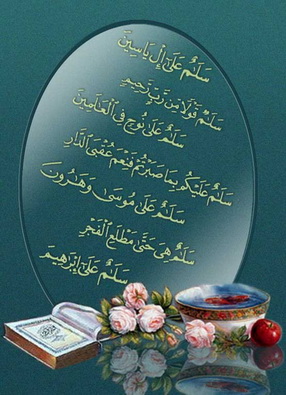 سَلَٰمٌ عَلَىٰٓ إِلْ يَاسِينَ
سَلَٰمٌ قَوْلًا مِّن رَّبٍّ رَّحِيمٍ
سَلَٰمٌ عَلَىٰ نُوحٍ فِي ٱلْعَالَمِينَ
سَلَٰمٌ عَلَيْكُم بِمَا صَبَرْتُمْ فَنِعْمَ عُقْبَى ٱلدَّارِ
سَلَٰمٌ عَلَىٰ مُوسَىٰ وَهَٰرُونَ
سَلَٰمٌ هِيَ حَتَّىٰ مَطْلَعِ ٱلْفَجْرِ
سَلَٰمٌ عَلَىٰٓ إِبْرَاهِيمَ